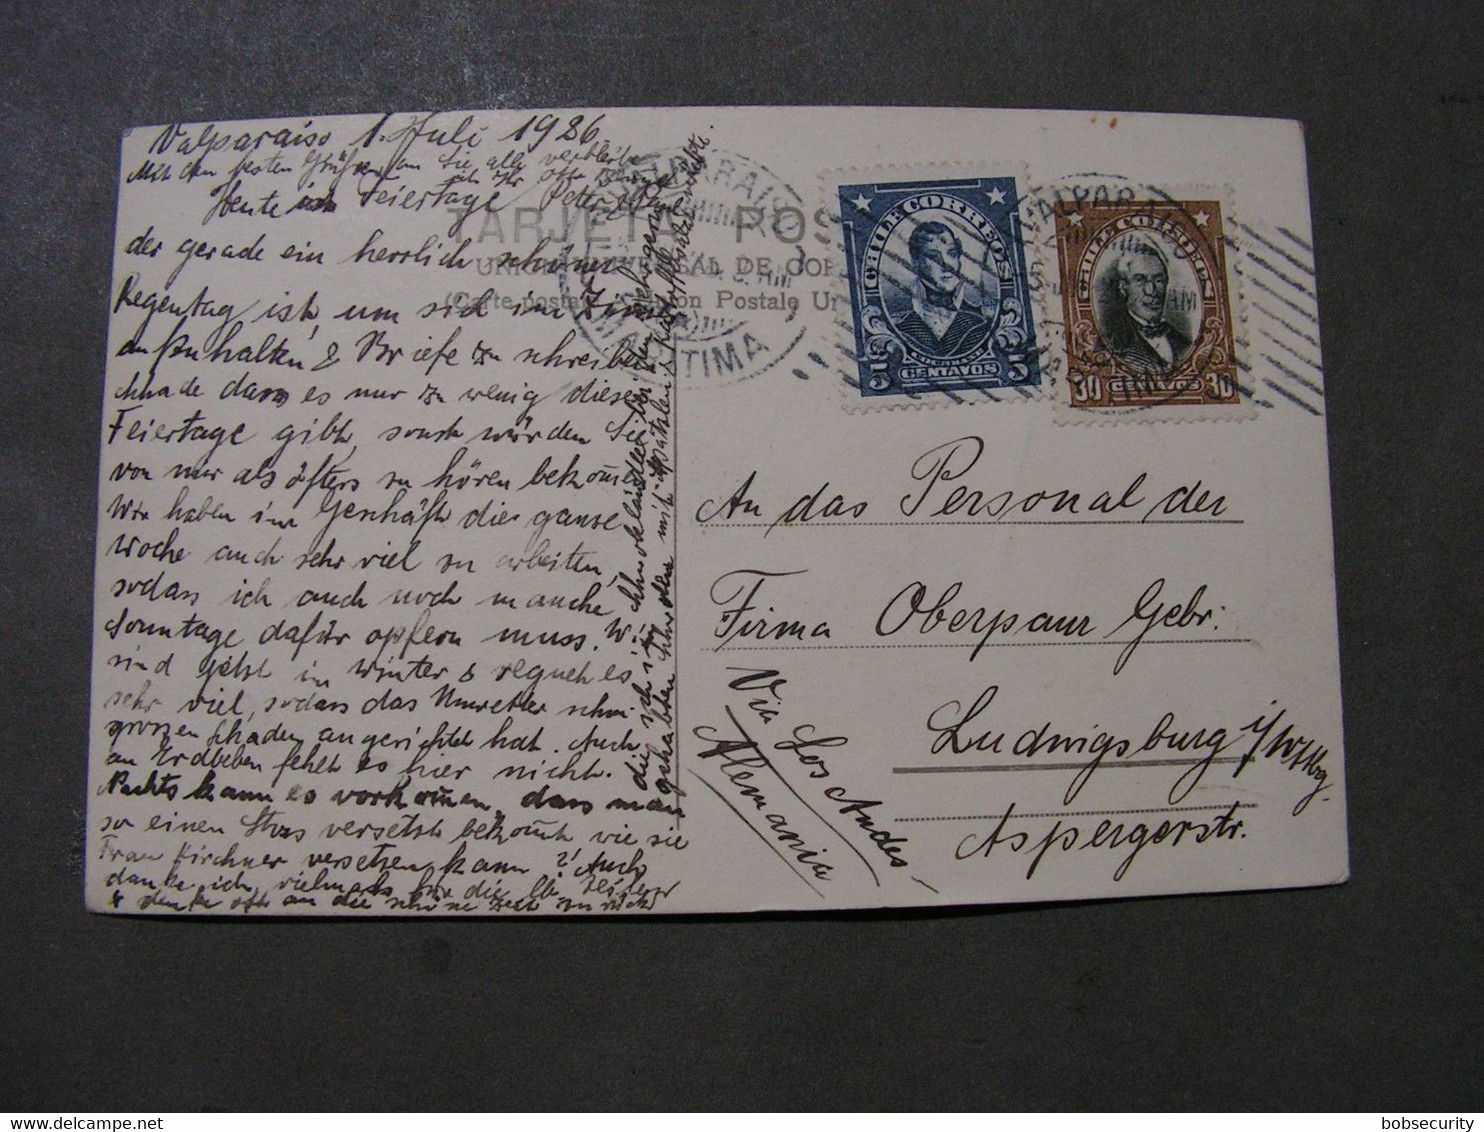 Valparaiso 1. Juli 1926
Mit den besten Grüßen an Sie alle verbleibe
ich Ihr
Peter
Heute ist Feiertage
der gerade ein herrlich schöner
Regentag ist, um sich im Zimmer
aufzuhalten & Briefe zu schreiben
schade dass es nur zu wenig dieser
Feiertage gibt, sonst würden Sie
von mir als öfters zu hören bekommen
Wir haben im Geschäft die ganze
Woche auch sehr viel zu arbeiten,
sodass ich auch noch manche
Sonntage dafür opfern muss. Wir
sind jetzt im Winter & regnet es
sehr viel, sodass das Unwetter schon
grossen Schaden angerichtet hat. Auch
an Erdbeben fehlt es hier nicht.
Nachts kann es vorkommen, dass man
so einen Stoss versetzt bekommt wie sie
Frau Kirchner versetzen kann?! Auch
danke ich vielmals für die lb.
& denke oft an die schöne Zeit zurück
die ich in
gehabten
TARJETA POS
UNION UNIVERSAL DE COR
(Carte postale Union Postale Un
VALPARAISO
MARITIMA
CHILE CORREOS
5 CENTAVOS 5
VALPARAISO
CHILE CORREOS
30 CENTAVOS 30
An das Personal der
Firma Oberpaur Gebr.
Ludwigsburg i/Wttbg.
Aspergerstr.
Via Los Andes
Alemania
bobsecurity